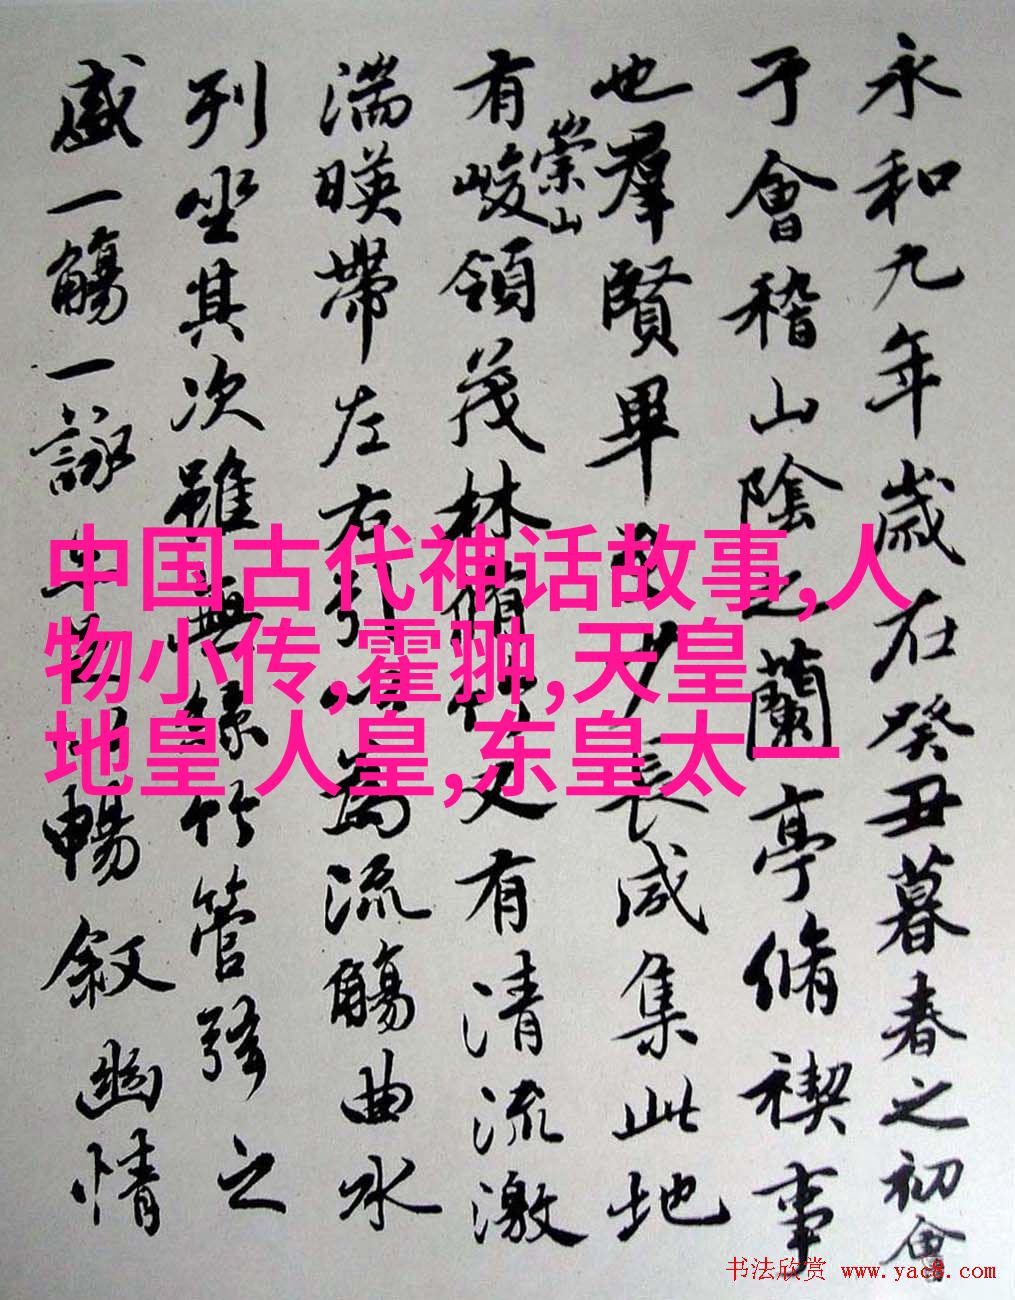 永和九年歲在癸丑暮春之初會
于會稽山陰之蘭亭脩禊事
也羣賢畢至少長咸集此地
有崇山峻領茂林脩竹又有清流激
湍暎帶左右引以為流觴曲水
列坐其次雖無絲竹管弦之
盛一觴一詠暢敘幽情
中国古代神话故事,人
物小传,霍翀,天皇
地皇 人皇,东皇太一
书法欣赏 www.yac8.com